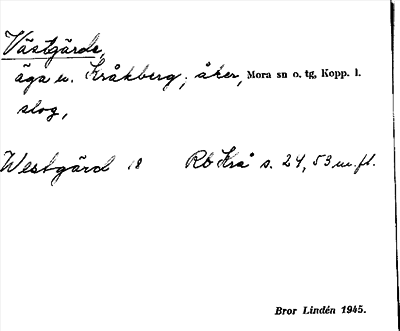 Västgärde,
äga u. Kråkberg; åker, Mora sn o. tg, Kopp. l.
slog,
Westgård 18 Rb Krå s. 24, 53 m.fl.
Bror Lindén 1945.